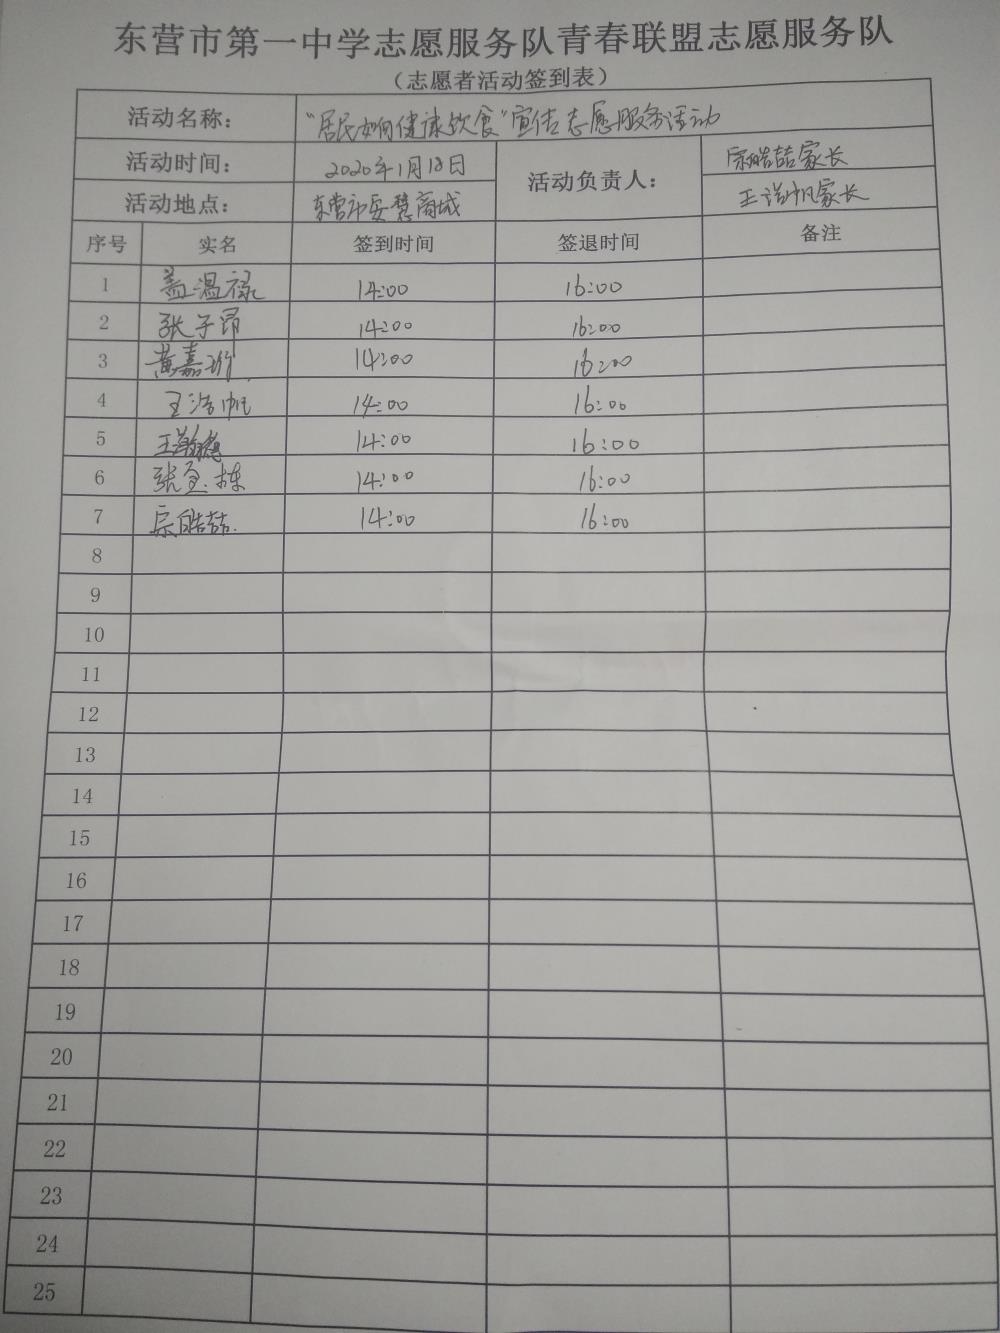 东营市第一中学志愿服务队青春联盟志愿服务队
（志愿者活动签到表）
活动名称： “居民如何健康饮食”宣传志愿服务活动
活动时间： 2020年1月18日 活动负责人： 宗皓喆家长
活动地点： 东营市安慧商城 王浩帆家长
序号 实名 签到时间 签退时间 备注
1 盖温禄 14:00 16:00
2 张子昂 14:00 16:00
3 黄嘉珩 14:00 16:00
4 王浩帆 14:00 16:00
5 王瀚德 14:00 16:00
6 张玺栋 14:00 16:00
7 宗皓喆 14:00 16:00
8
9
10
11
12
13
14
15
16
17
18
19
20
21
22
23
24
25